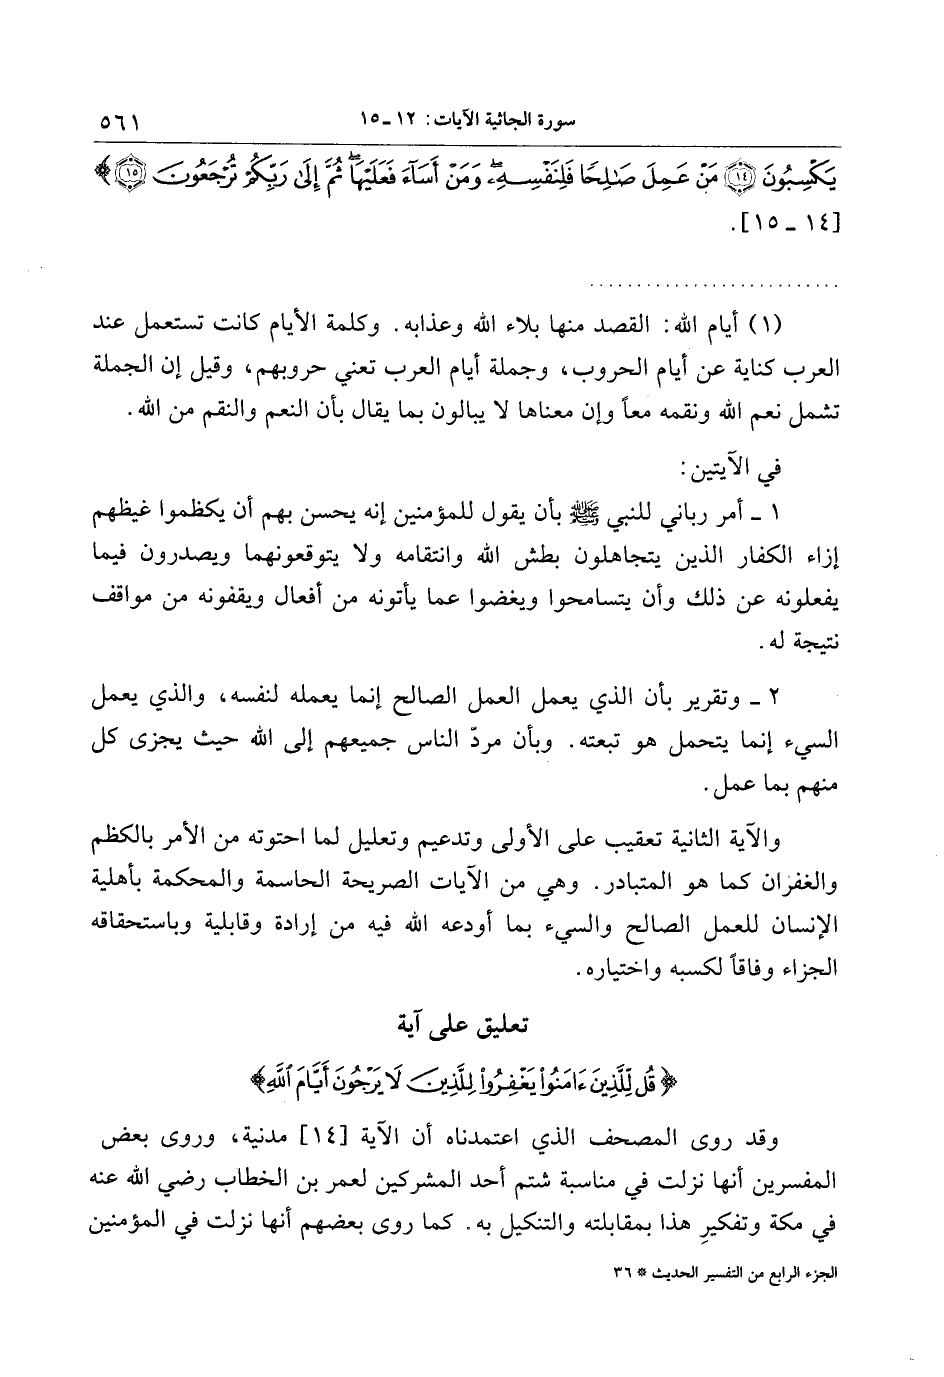 سورة الجاثية الآيات: ١٢ـ١٥ ٥٦١
يَكْسِبُونَ ﴿١٤﴾ مَنْ عَمِلَ صَٰلِحًا فَلِنَفْسِهِۦۖ وَمَنْ أَسَآءَ فَعَلَيْهَاۖ ثُمَّ إِلَىٰ رَبِّكُمْ تُرْجَعُونَ ﴿١٥﴾ ﴾
[١٤ ـ ١٥].
..........................
(١) أيام الله: القصد منها بلاء الله وعذابه. وكلمة الأيام كانت تستعمل عند
العرب كناية عن أيام الحروب، وجملة أيام العرب تعني حروبهم، وقيل إن الجملة
تشمل نعم الله ونقمه معاً وإن معناها لا يبالون بما يقال بأن النعم والنقم من الله.
في الآيتين:
١ ـ أمر رباني للنبي ﷺ بأن يقول للمؤمنين إنه يحسن بهم أن يكظموا غيظهم
إزاء الكفار الذين يتجاهلون بطش الله وانتقامه ولا يتوقعونهما ويصدرون فيما
يفعلونه عن ذلك وأن يتسامحوا ويغضوا عما يأتونه من أفعال ويقفونه من مواقف
نتيجة له.
٢ ـ وتقرير بأن الذي يعمل العمل الصالح إنما يعمله لنفسه، والذي يعمل
السيء إنما يتحمل هو تبعته. وبأن مردّ الناس جميعهم إلى الله حيث يجزى كل
منهم بما عمل.
والآية الثانية تعقيب على الأولى وتدعيم وتعليل لما احتوته من الأمر بالكظم
والغفران كما هو المتبادر. وهي من الآيات الصريحة الحاسمة والمحكمة بأهلية
الإنسان للعمل الصالح والسيء بما أودعه الله فيه من إرادة وقابلية وباستحقاقه
الجزاء وفاقاً لكسبه واختياره.
تعليق على آية
﴿ قُل لِّلَّذِينَ ءَامَنُوا۟ يَغْفِرُوا۟ لِلَّذِينَ لَا يَرْجُونَ أَيَّامَ ٱللَّهِ ﴾
وقد روى المصحف الذي اعتمدناه أن الآية [١٤] مدنية، وروى بعض
المفسرين أنها نزلت في مناسبة شتم أحد المشركين لعمر بن الخطاب رضي الله عنه
في مكة وتفكيرِ هذا بمقابلته والتنكيل به. كما روى بعضهم أنها نزلت في المؤمنين
الجزء الرابع من التفسير الحديث * ٣٦